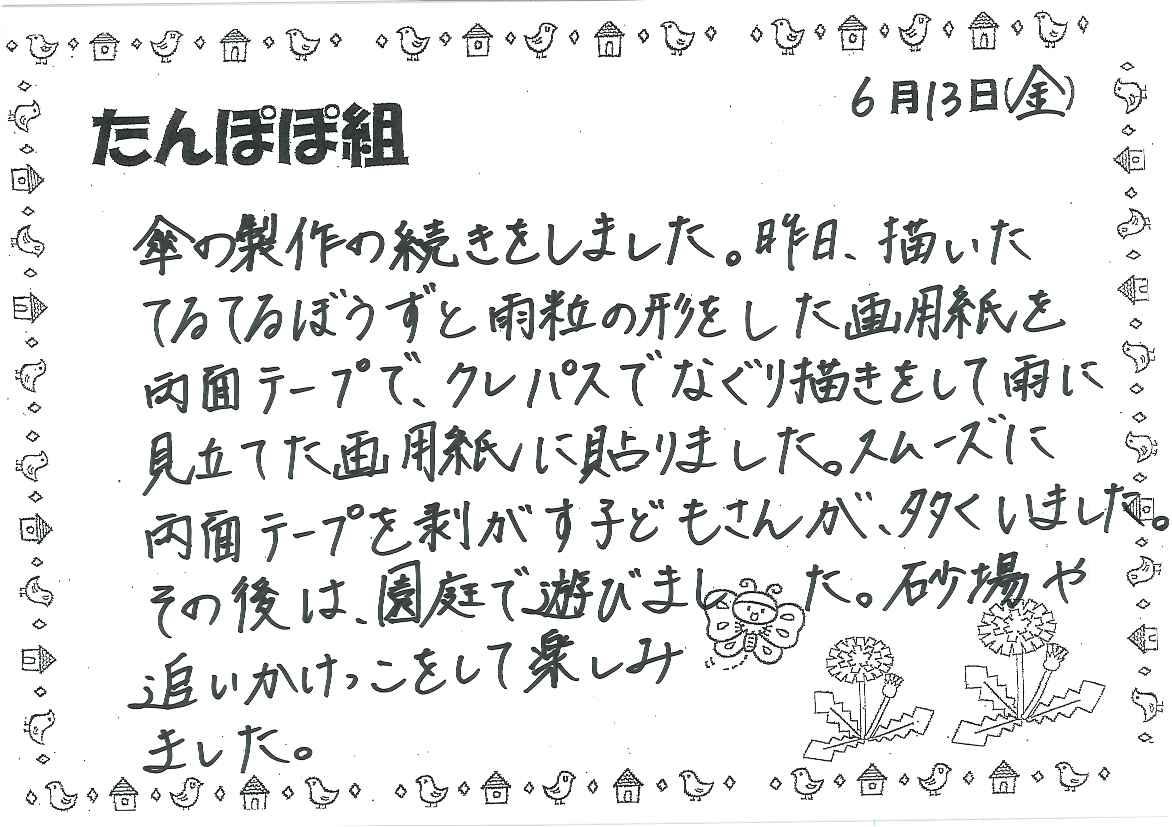 6月13日(金)
たんぽぽ組
傘の製作の続きをしました。昨日、描いた
てるてるぼうずと雨粒の形をした画用紙を
両面テープで、クレパスでなぐり描きをして雨に
見立てた画用紙に貼りました。スムーズに
両面テープを剥がす子どもさんが、多くいました。
その後は、園庭で遊びました。砂場や
追いかけっこをして楽しみ
ました。